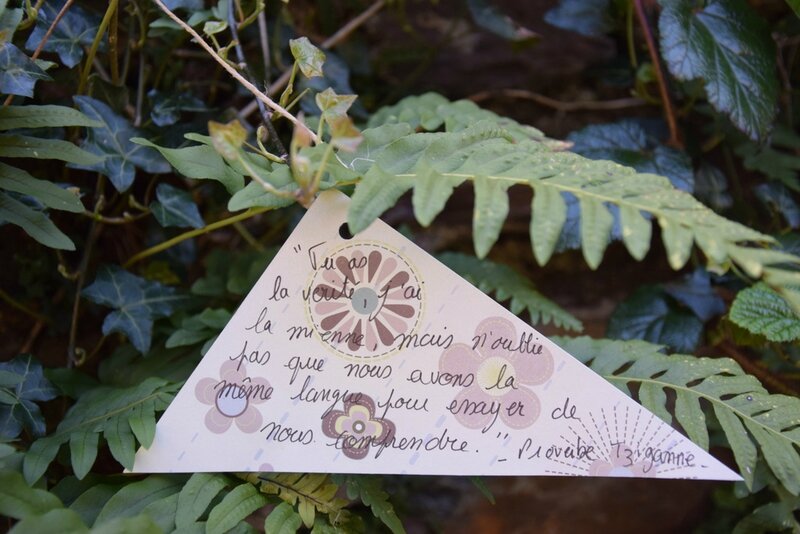 "Tu as
la vérité, j'ai
la mienne, mais n'oublie
pas que nous avons la
même langue pour essayer de
nous comprendre." - Proverbe Tziganne.